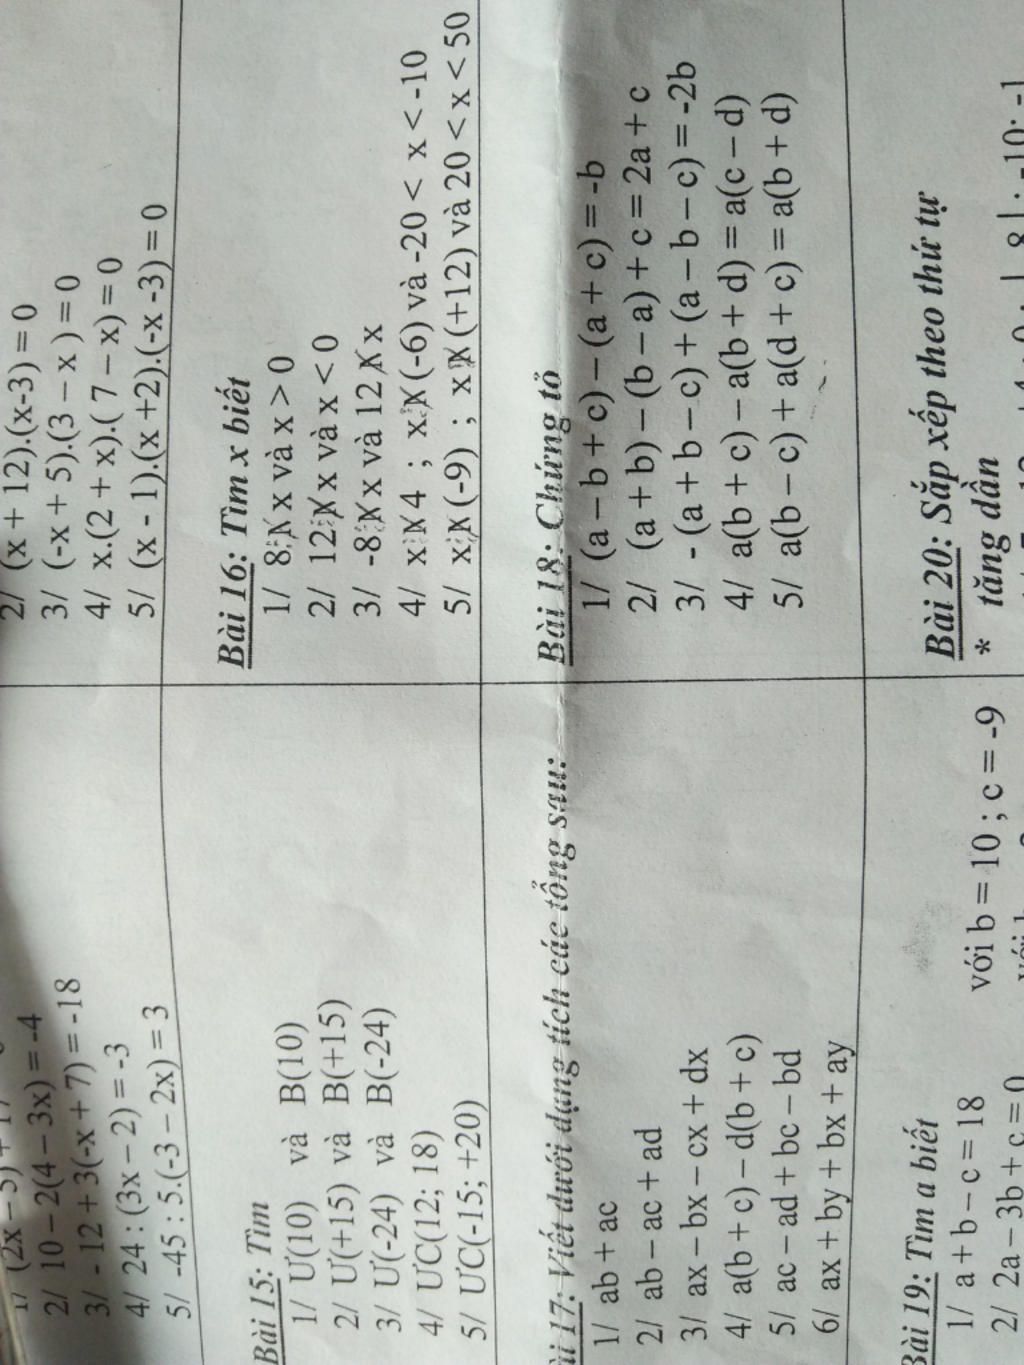 1/ (2x – 5) + 17
2/ 10 – 2(4 – 3x) = -4
3/ - 12 + 3(-x + 7) = -18
4/ 24 : (3x – 2) = -3
5/ -45 : 5.(-3 – 2x) = 3
2/ (x + 12).(x-3) = 0
3/ (-x + 5).(3 – x ) = 0
4/ x.(2 + x).( 7 – x) = 0
5/ (x - 1).(x +2).(-x -3) = 0
Bài 15: Tìm
1/ Ư(10) và B(10)
2/ Ư(+15) và B(+15)
3/ Ư(-24) và B(-24)
4/ ƯC(12; 18)
5/ ƯC(-15; +20)
Bài 16: Tìm x biết
1/ 8 x và x > 0
2/ 12 x và x < 0
3/ -8 x và 12 x
4/ x 4 ; x (-6) và -20 < x < -10
5/ x (-9) ; x (+12) và 20 < x < 50
17: Viết dưới dạng tích các tổng sau:
1/ ab + ac
2/ ab – ac + ad
3/ ax – bx – cx + dx
4/ a(b + c) – d(b + c)
5/ ac – ad + bc – bd
6/ ax + by + bx + ay
Bài 18: Chứng tỏ
1/ (a – b + c) – (a + c) = -b
2/ (a + b) – (b – a) + c = 2a + c
3/ - (a + b – c) + (a – b – c) = -2b
4/ a(b + c) – a(b + d) = a(c – d)
5/ a(b – c) + a(d + c) = a(b + d)
Bài 19: Tìm a biết
1/ a + b – c = 18 với b = 10 ; c = -9
2/ 2a – 3b + c = 0 với
Bài 20: Sắp xếp theo thứ tự
* tăng dần